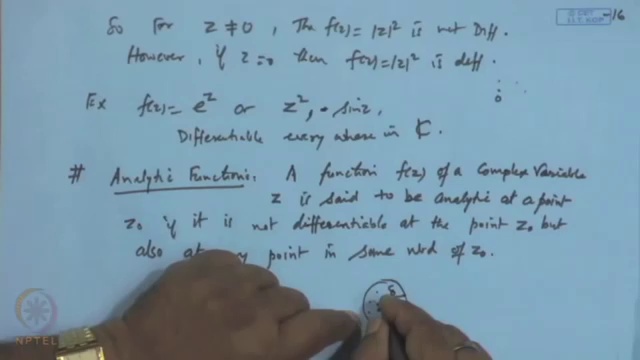 So For z ≠ 0, The f(z) = |z|² is not Diff.
However, if z = 0 then f(z) = |z|² is diff.
Ex f(z) = e^z or z², sin z,
Differentiable every where in ℂ.
# Analytic Functions: A function f(z) of a Complex Variable
z is said to be analytic at a point
z₀ if it is not differentiable at the point z₀ but
also at point in some nbd of z₀.
© CET
I.I.T. KGP
-16
NPTEL